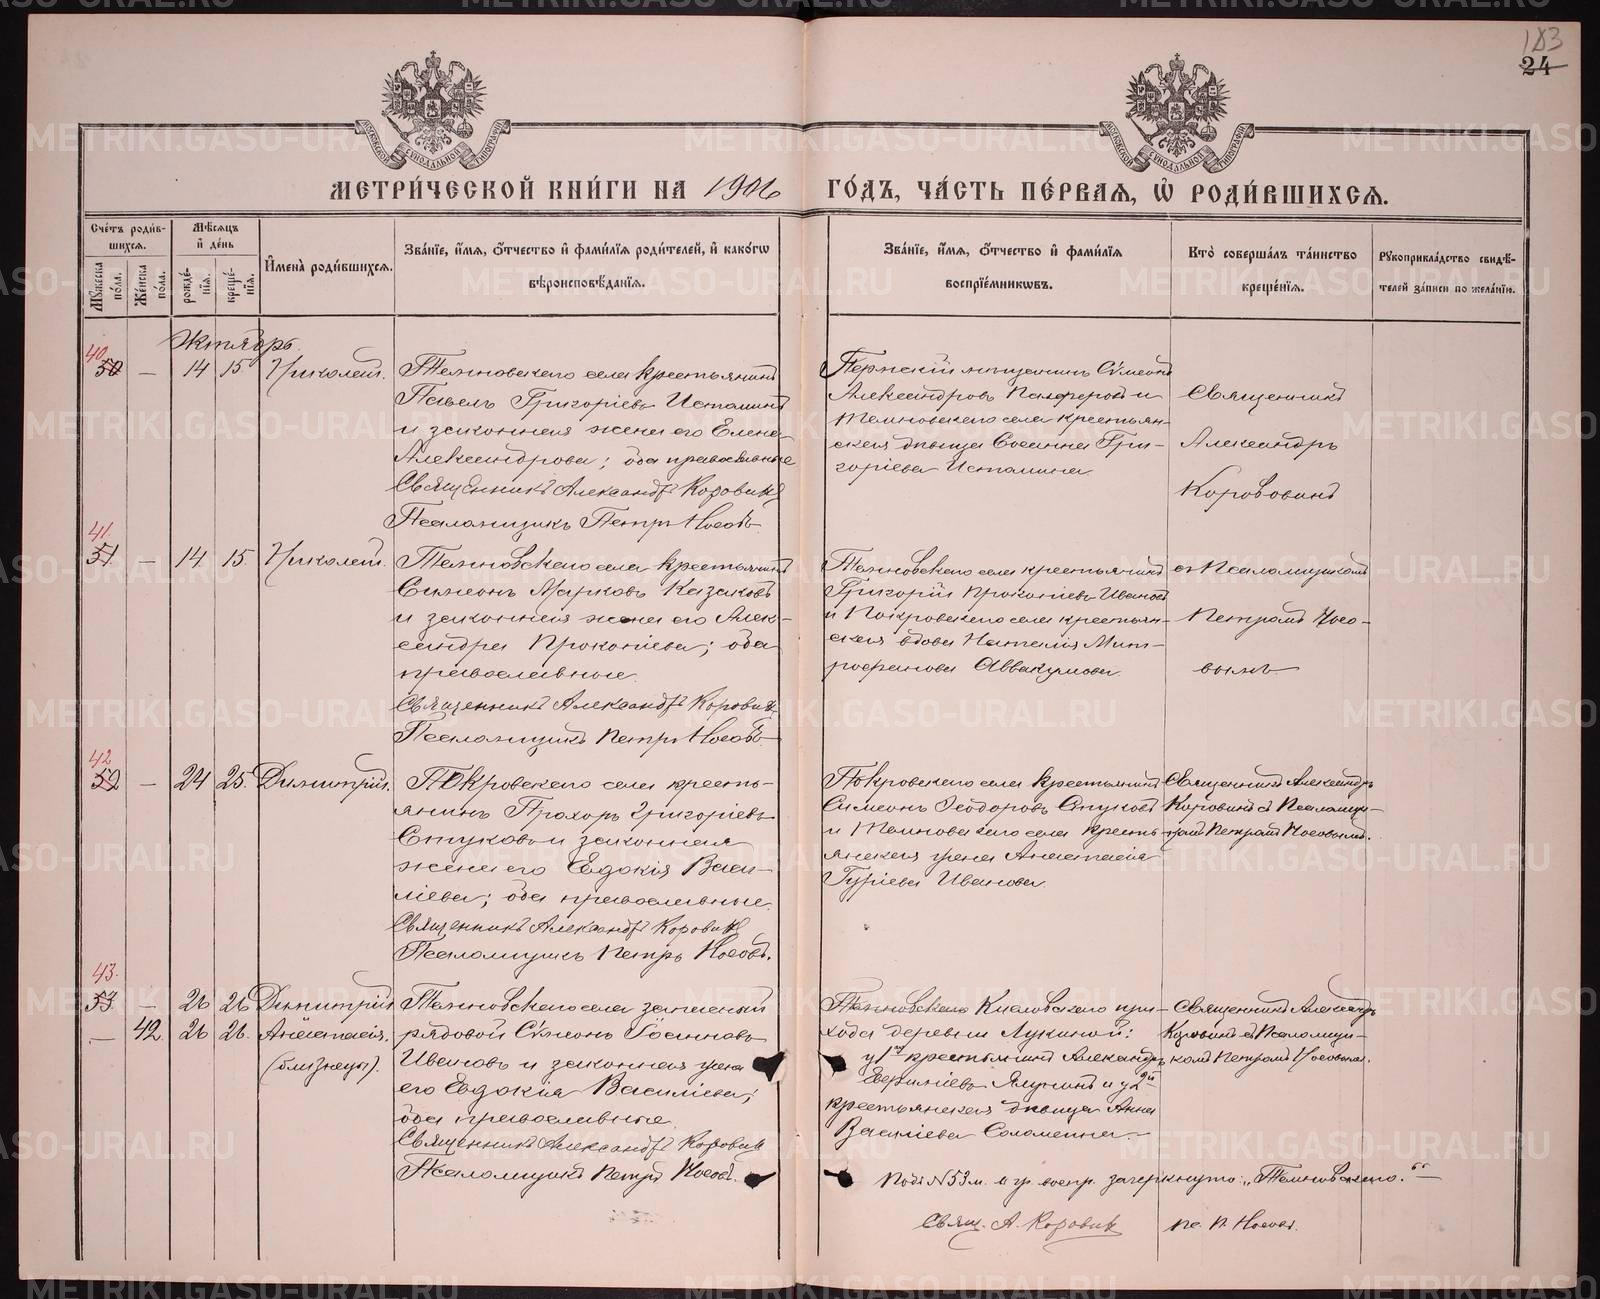 183
24
МОСКОВСКОЙ СѴНОДАЛЬНОЙ ТИПОГРАФІИ
МОСКОВСКОЙ СѴНОДАЛЬНОЙ ТИПОГРАФІИ
МЕТРИ́ЧЕСКОЙ КНИ́ГИ НА 1906 ГО́ДЪ, ЧА́СТЬ ПЕ́РВАЯ, Ѡ РОДИ́ВШИХСЯ.
Сче́тъ роди́в-
шихся.
Мѣ́сяцъ
и́ де́нь
Мꙋ́жеска
по́ла.
Же́нска
по́ла.
рожде́-
нїя.
креще́-
нїя.
И҆мена̀ роди́вшихся.
Зва́нїе, и҆́мя, ѻ҆́тчество и҆ фами́лїя роди́телей, и҆ како́гѡ
вѣроисповѣ́данїя.
Зва́нїе, и҆́мя, ѻ҆́тчество и҆ фами́лїя
воспрїе́мникѡвъ.
Кто̀ соверша́лъ та́инство
креще́нїя.
Рꙋкоприкла́дство свидѣ́-
телей за́писи по жела́нїю.
Октябрь.
40
50 — 14 15 Николай.
Темновскаго села крестьянинъ
Павелъ Григоріевъ Истоминъ
и законная жена его Елена
Александрова; оба православные
Священникъ Александръ Коровинъ
Псаломщикъ Петръ Носовъ
Пермскій мѣщанинъ Сѵмеонъ
Александровъ Панферовъ и
Темновскаго села крестьян-
ская дѣвица Сосанна Гри-
горіева Истомина
Священникъ
Александръ
Коровинъ
41.
51 — 14 15. Николай.
Темновскаго села крестьянинъ
Симеонъ Марковъ Казаковъ
и законная жена его Алек-
сандра Прокопіева; оба
православные.
Священникъ Александръ Коровинъ
Псаломщикъ Петръ Носовъ
Темновскаго села крестьянинъ
Григорій Прокопіевъ Ивановъ
и Покровскаго села крестьян-
ская вдова Наталія Мит-
рофанова Аввакумова.
съ Псаломщикомъ
Петромъ Носо-
вымъ
42
52 — 24 25. Димитрій.
Покровскаго села кресть-
янинъ Прохоръ Григоріевъ
Стуковъ и законная
жена его Евдокія Васи-
ліева; оба православные.
Священникъ Александръ Коровинъ
Псаломщикъ Петръ Носовъ.
Покровскаго села крестьянинъ
Симеонъ Ѳеодоровъ Стуковъ
и Темновскаго села кресть-
янская жена Анастасія
Гуріева Иванова.
Священникъ Александръ
Коровинъ съ Псаломщи-
комъ Петромъ Носовымъ.
43.
53. — 26 26 Димитрій
— 42. 26 26. Анастасія.
(близнецы).
Темновскаго села запасный
рядовой Сѵмеонъ Іоанновъ
Ивановъ и законная жена
его Евдокія Василіева;
оба православные.
Священникъ Александръ Коровинъ
Псаломщикъ Петръ Носовъ.
Темновскаго Кисловскаго при-
хода деревни Лукиной:
у 1го крестьянинъ Александръ
Ялунинъ и у 2й
крестьянская дѣвица Анна
Василіева Соломеина.
Священникъ Александръ
Коровинъ съ Псаломщи-
комъ Петромъ Носовымъ.
Подъ N 53 м. в гр. воспр. зачеркнуто: „Темновскаго.“ —
Свящ. А. Коровинъ
пс. П. Носовъ.
METRIKI.GASO-URAL.RU